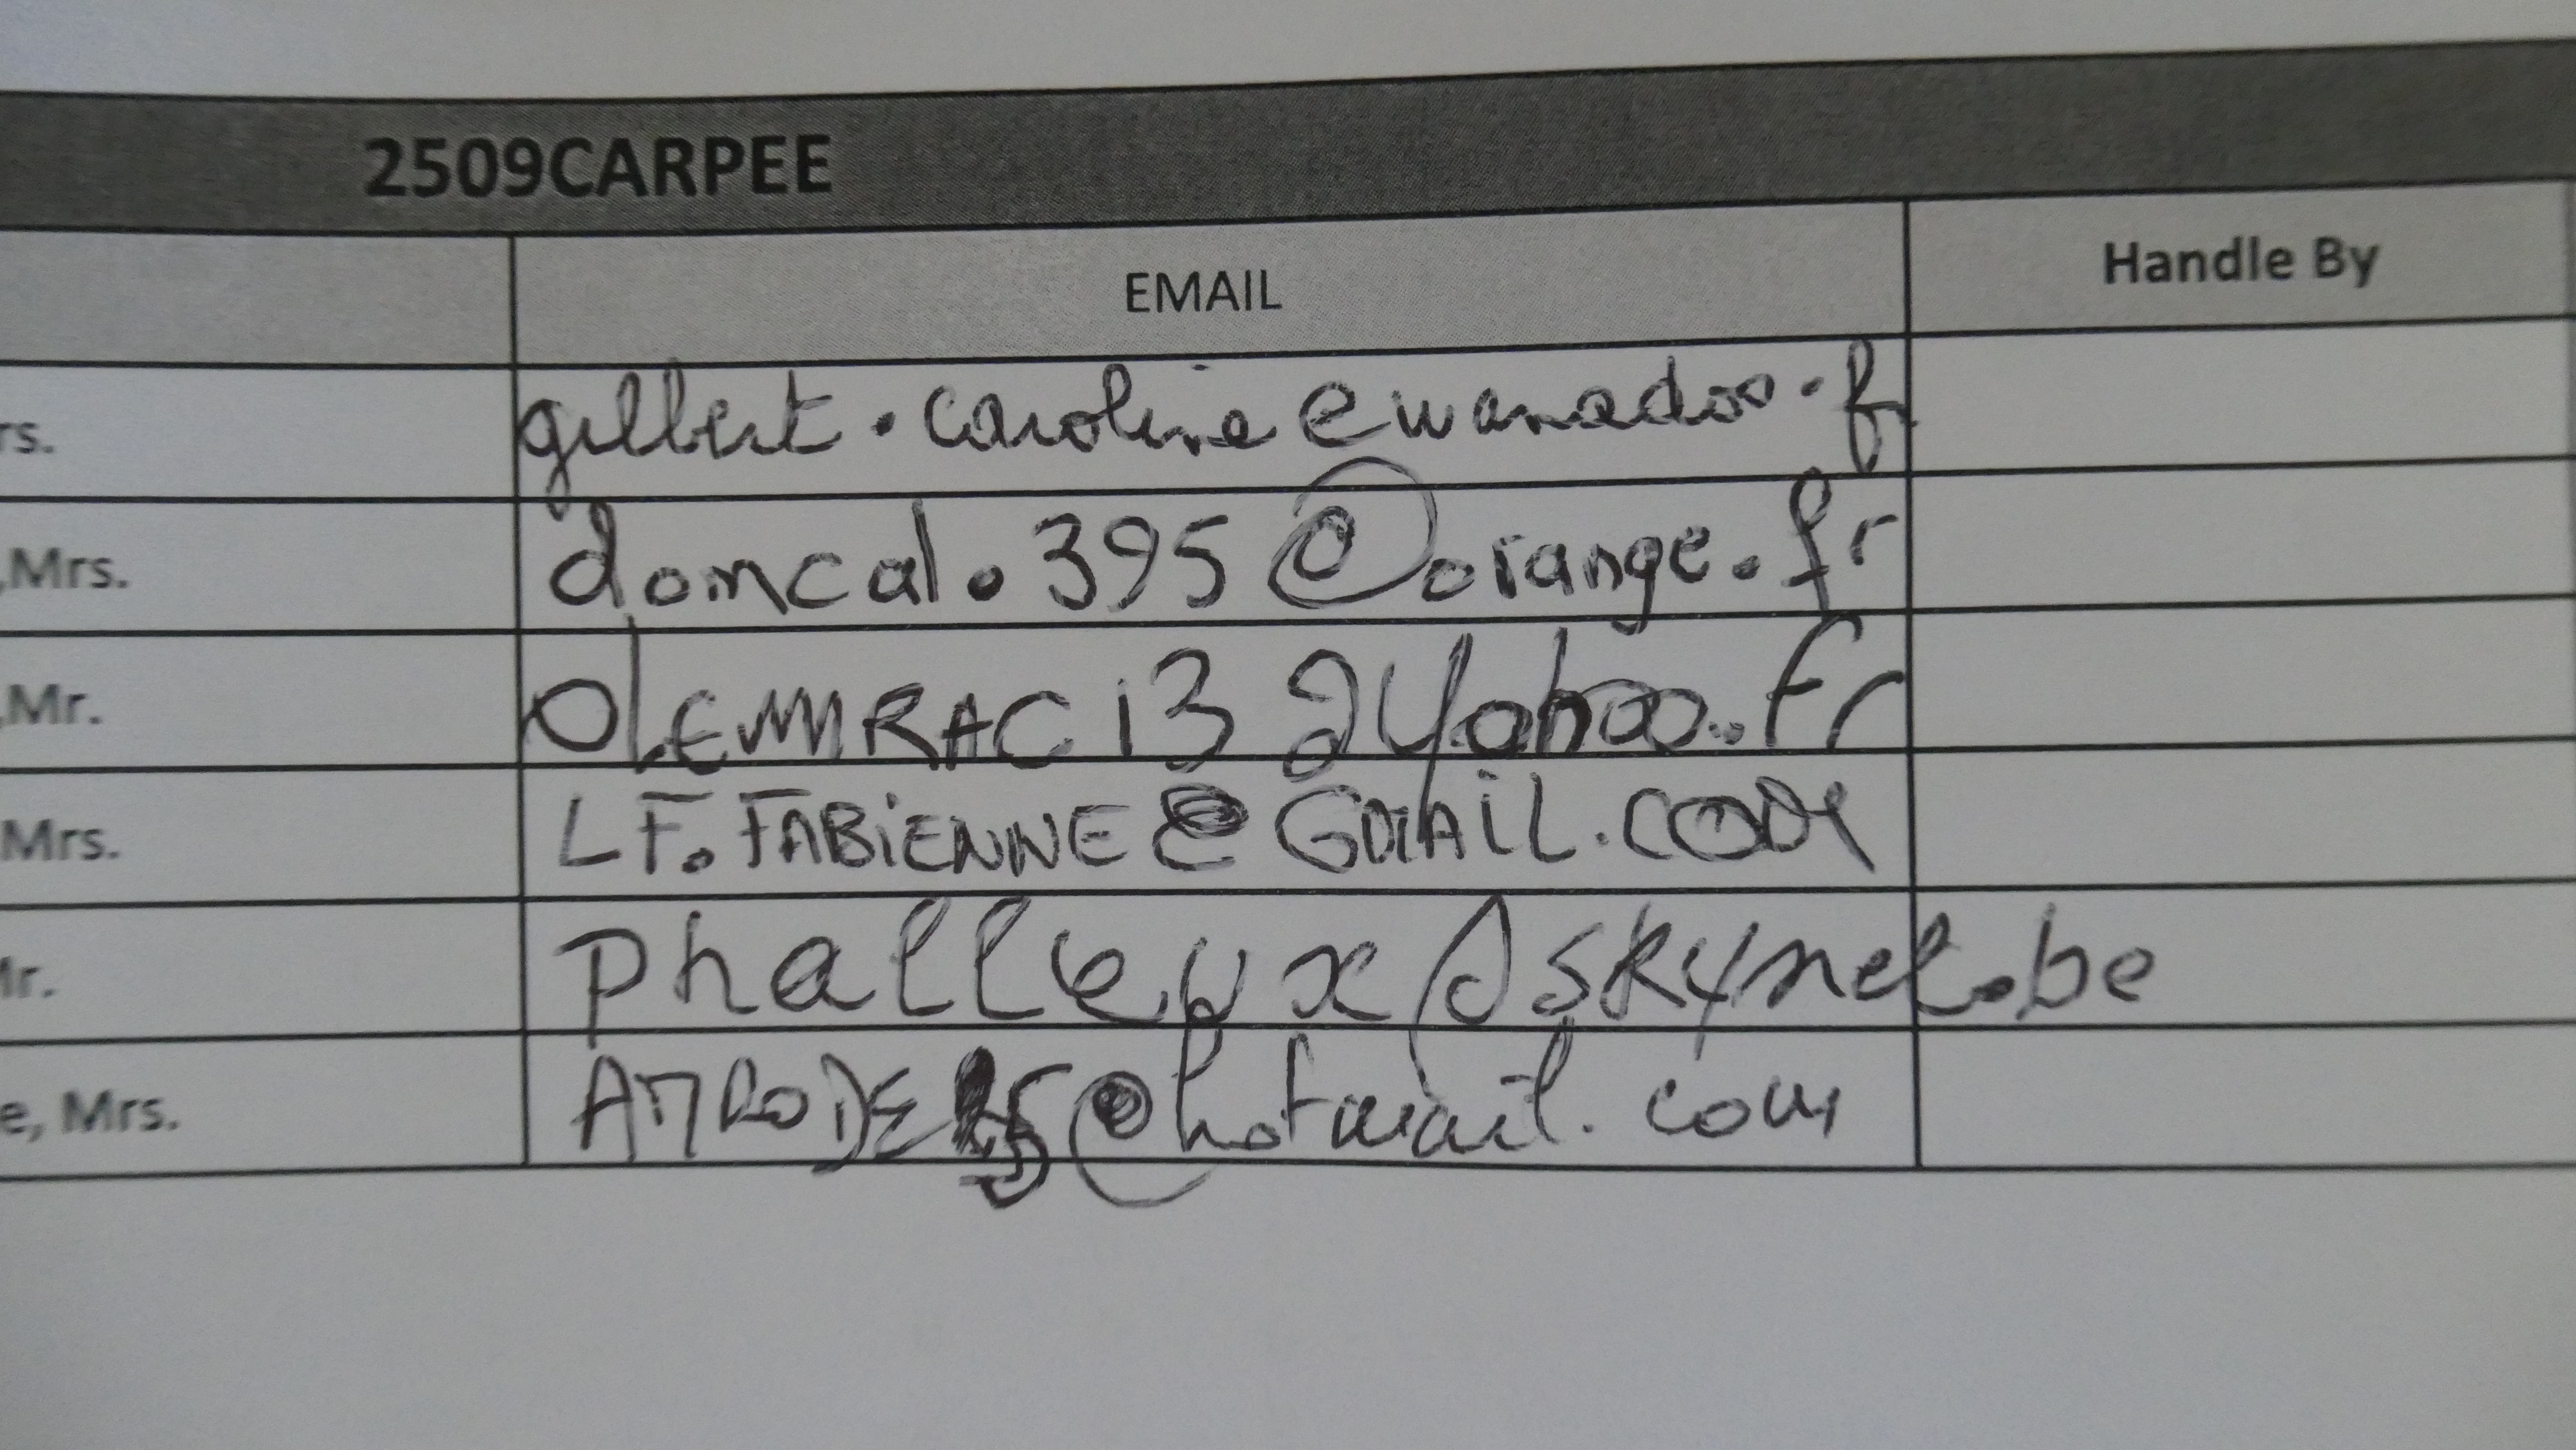 2509CARPEE
EMAIL Handle By
rs. gilbert.caroline@wanadoo.fr
,Mrs. domcal.395@orange.fr
,Mr. @yahoo.fr
Mrs. LF.FABiENNE@GMAiL.COM
Mr. phalleux@skynet.be
e, Mrs. @hotmail.com